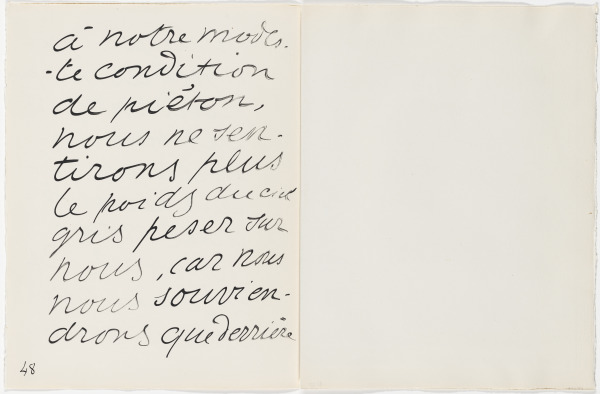 à notre modes-
-te condition
de piéton,
nous ne sen-
tirons plus
le poids du ciel
gris peser sur
nous, car nous
nous souvien-
drons que derrière
48